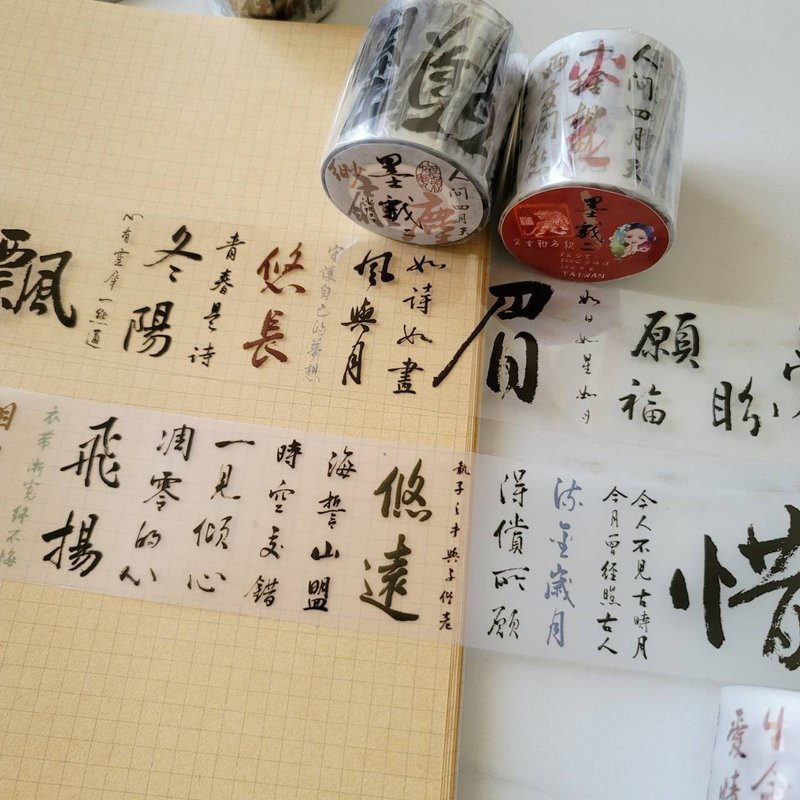 人间四月天
墨戲二
人间四月天
墨戲二
父女聯名款
TAIWAN
如詩如畫
風與月
守護自己的夢想
悠長
青春是詩
冬陽
心有靈犀一點通
飄
眉
如日如星如月
願
福
盼
執子之手與子偕老
悠遠
海誓山盟
時空交錯
一見傾心
凋零的心
飛揚
衣帶漸寬終不悔
惜
今人不見古時月
今月曾經照古人
流金歲月
得償所願
生命
愛情